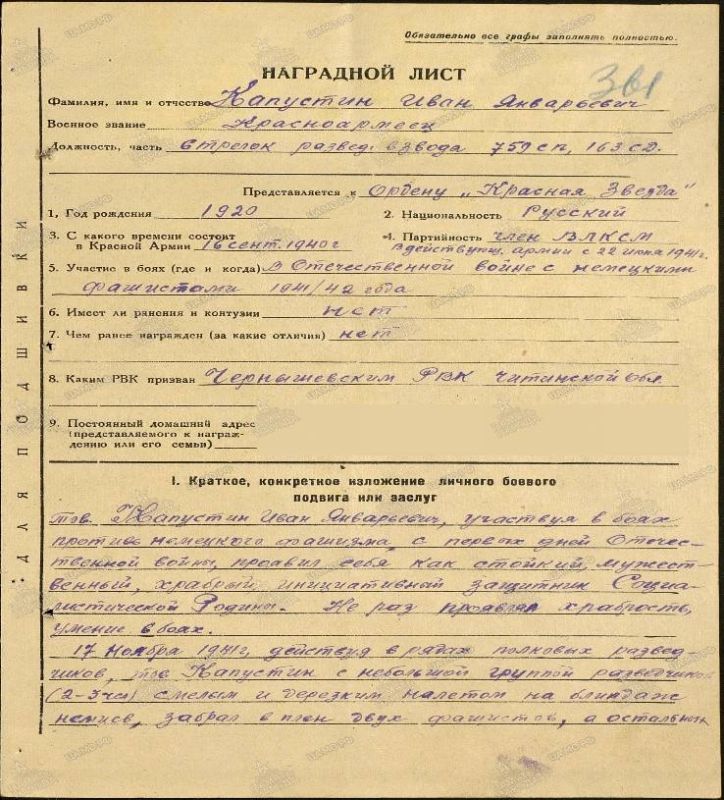 Обязательно все графы заполнять полностью.
НАГРАДНОЙ ЛИСТ
361
Фамилия, имя и отчество Капустин Иван Январьевич
Военное звание Красноармеец
Должность, часть Стрелок развед. взвода 759 сп, 163 сд.
Представляется к Ордену „Красная Звезда"
1. Год рождения 1920
2. Национальность Русский
3. С какого времени состоит
в Красной Армии 16 сент. 1940 г
4. Партийность член ВЛКСМ
В действующ. армии с 22 июня 1941 г.
5. Участие в боях (где и когда) В Отечественной войне с немецкими
фашистами 1941/42 года
6. Имеет ли ранения и контузии нет
7. Чем ранее награжден (за какие отличия) нет
8. Каким РВК призван Чернышевским РВК Читинской обл.
9. Постоянный домашний адрес
(представляемого к награж-
дению или его семьи)
ДЛЯ ПОДШИВКИ
I. Краткое, конкретное изложение личного боевого
подвига или заслуг
тов. Капустин Иван Январьевич, участвуя в боях
против немецкого фашизма с первых дней Отече-
ственной войны, проявил себя как стойкий, мужест-
венный, храбрый, инициативный защитник Социа-
листической Родины. Не раз проявлял храбрость,
умение в боях.
17 ноября 1941 г, действуя в рядах полковых развед-
чиков, тов Капустин с небольшой группой разведчиков
(2-3 чел) смелым и дерзким налетом на блиндаж
немцев, забрал в плен двух фашистов, а остальных